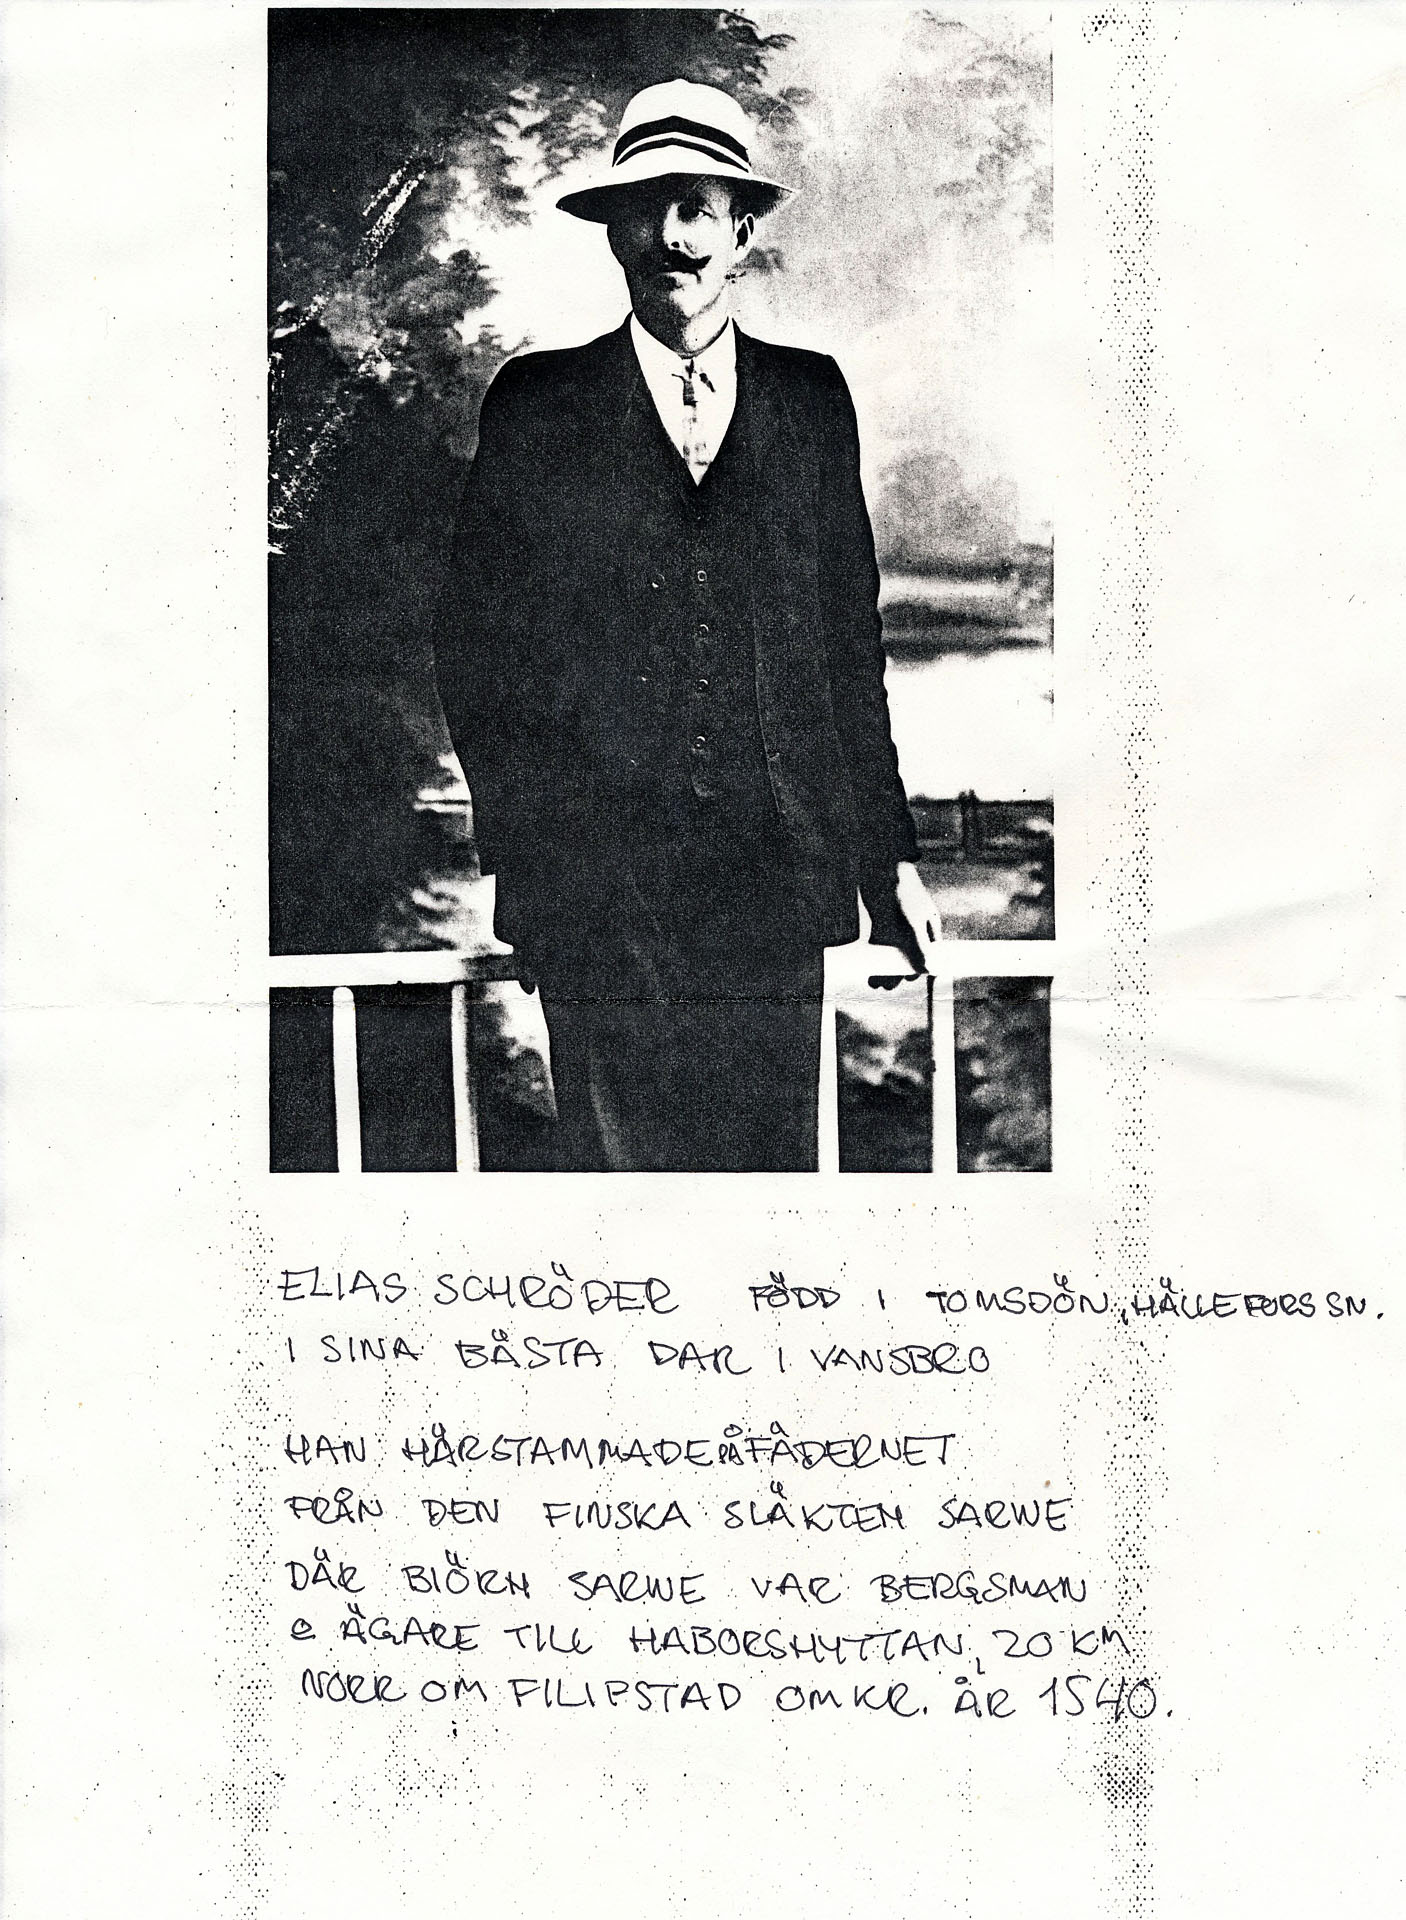 ELIAS SCHRÖDER FÖDD I TOMSDÖN, HÄLLEFORS SN.
I SINA BÄSTA DAR I VANSBRO
HAN HÄRSTAMMADE PÅ FÄDERNET
FRÅN DEN FINSKA SLÄKTEN SARWE
DÄR BIÖRN SARWE VAR BERGSMAN
O ÄGARE TILL HABORSHYTTAN, 20 KM
NORR OM FILIPSTAD OMKR. ÅR 1540.